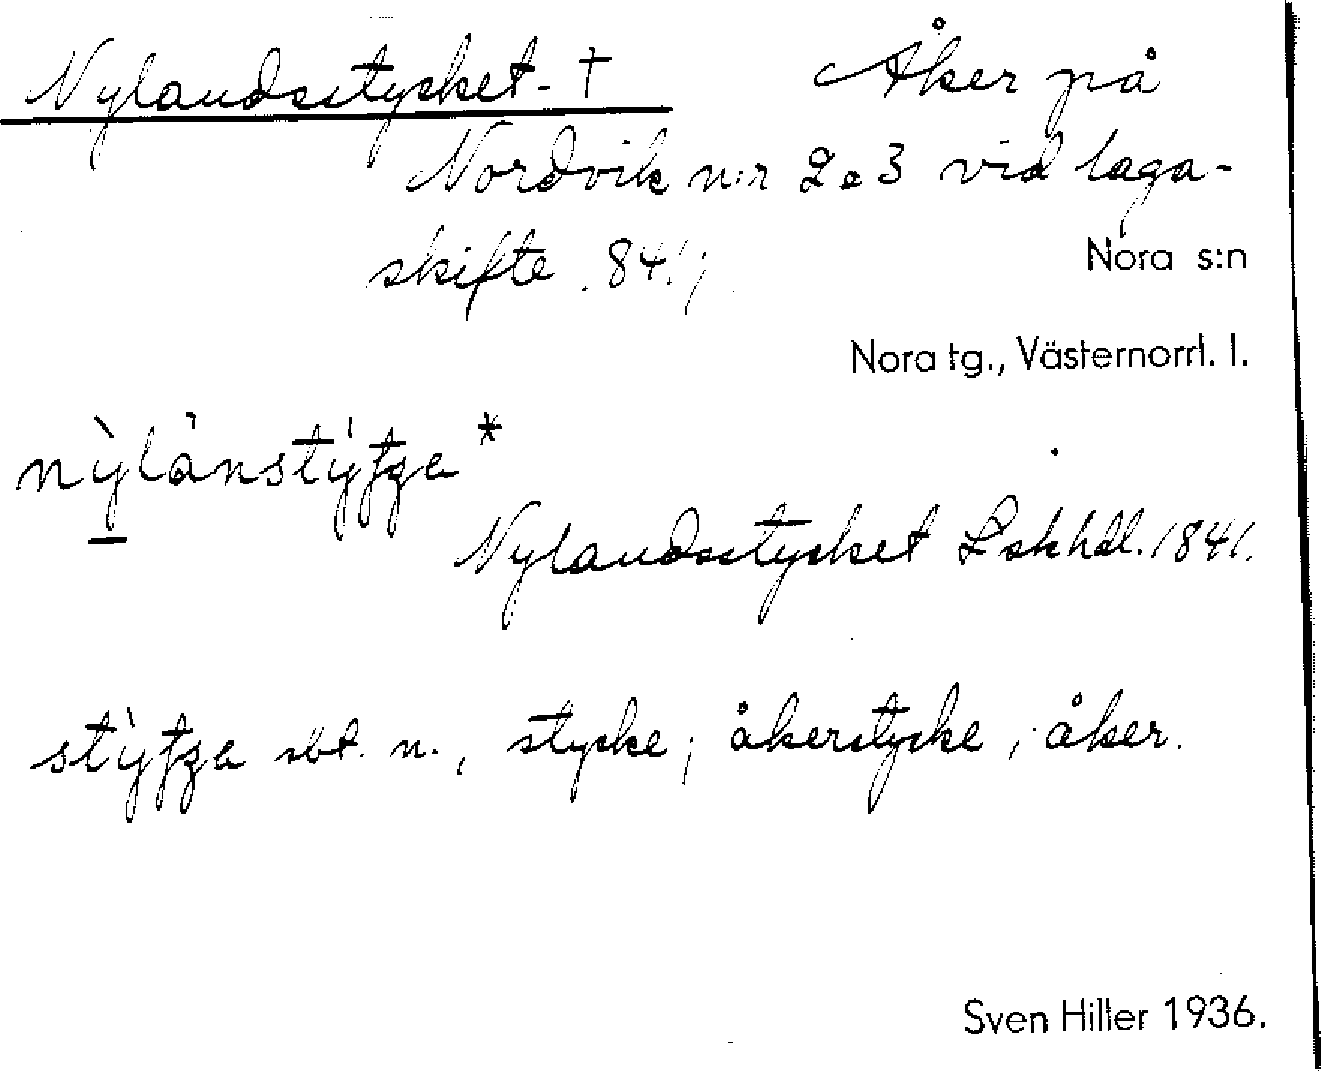 Nylandsstycket. † Åker på
Nordvik n:r 2 o 3 vid laga-
skifte 1841.
Nora s:n
Nora tg., Västernorrl. l.
Nylandsstycket Lskhdl. 1841.
sbt. n., stycke; åkerstycke; åker.
Sven Hiller 1936.